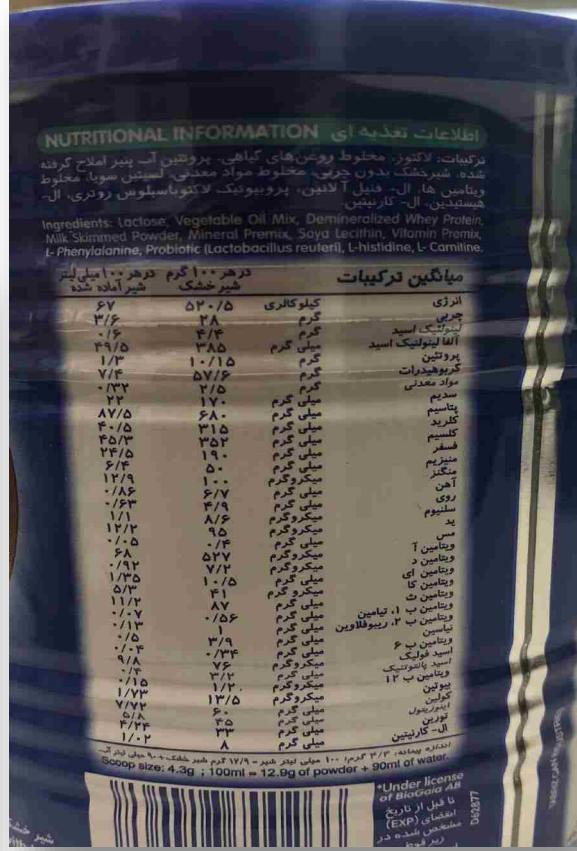 NUTRITIONAL INFORMATION اطلاعات تغذیه ای
ترکیبات: لاکتوز، مخلوط روغن‌های گیاهی، پروتئین آب پنیر املاح گرفته
شده، شیرخشک بدون چربی، مخلوط مواد معدنی، لسیتین سویا، مخلوط
ویتامین ها، ال- فنیل آلانین، پروبیوتیک لاکتوباسیلوس روتری، ال-
هیستیدین، ال- کارنیتین.
Ingredients: Lactose, Vegetable Oil Mix, Demineralized Whey Protein,
Milk Skimmed Powder, Mineral Premix, Soya Lecithin, Vitamin Premix,
L- Phenylalanine, Probiotic (Lactobacillus reuteri), L-histidine, L- Carnitine.
میانگین ترکیبات در هر ۱۰۰ گرم شیر خشک در هر ۱۰۰ میلی لیتر شیر آماده شده
انرژی کیلو کالری ۵۲۰/۵ ۶۷
چربی گرم ۲۸ ۳/۶
لینولئیک اسید گرم ۴/۴ ۰/۶
آلفا لینولنیک اسید میلی گرم ۳۸۵ ۴۹/۵
پروتئین گرم ۱۰/۱۵ ۱/۳
کربوهیدرات گرم ۵۷/۶ ۷/۴
مواد معدنی گرم ۲/۵ ۰/۳۲
سدیم میلی گرم ۱۷۰ ۲۲
پتاسیم میلی گرم ۶۸۰ ۸۷/۵
کلرید میلی گرم ۳۱۵ ۴۰/۵
کلسیم میلی گرم ۳۵۲ ۴۵/۳
فسفر میلی گرم ۱۹۰ ۲۴/۵
منیزیم میلی گرم ۵۰ ۶/۴
منگنز میکروگرم ۱۰۰ ۱۲/۹
آهن میلی گرم ۶/۷ ۰/۸۶
روی میلی گرم ۴/۹ ۰/۶۳
سلنیوم میکروگرم ۸/۶ ۱/۱
ید میکروگرم ۹۵ ۱۲/۲
مس میلی گرم ۰/۴ ۰/۰۵
ویتامین آ میکروگرم ۵۲۷ ۶۸
ویتامین د میکروگرم ۷/۲ ۰/۹۲
ویتامین ای میلی گرم ۱۰/۵ ۱/۳۵
ویتامین کا میکرو گرم ۴۱ ۵/۳
ویتامین ث میلی گرم ۸۷ ۱۱/۲
ویتامین ب ۱، تیامین میلی گرم ۰/۵۶ ۰/۰۷
ویتامین ب ۲، ریبوفلاوین میلی گرم ۱ ۰/۱۳
نیاسین میلی گرم ۳/۹ ۰/۵
ویتامین ب ۶ میلی گرم ۰/۳۴ ۰/۰۴
اسید فولیک میکروگرم ۷۶ ۹/۸
اسید پانتوتنیک میلی گرم ۳/۲ ۰/۴
ویتامین ب ۱۲ میکروگرم ۱/۲ ۰/۱۵
بیوتین میکروگرم ۱۳/۵ ۱/۷۳
کولین میلی گرم ۶۰ ۷/۷۲
اینوزیتول میلی گرم ۴۵ ۵/۸
تورین میلی گرم ۳۳ ۴/۲۴
ال- کارنیتین میلی گرم ۸ ۱/۰۲
اندازه پیمانه: ۴/۳ گرم؛ ۱۰۰ میلی لیتر شیر = ۱۲/۹ گرم شیر خشک + ۹۰ میلی لیتر آب
Scoop size: 4.3g ; 100ml = 12.9g of powder + 90ml of water.
*Under license
of BioGaia AB
تا قبل از تاریخ
انقضای (EXP)
مشخص شده در
زیر قوطی
D62877
شیر خشک